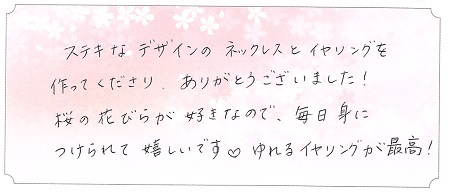 ステキな デザインの ネックレスと イヤリングを
作ってくださり、ありがとうございました！
桜の花びらが 好きなので、毎日身に
つけられて 嬉しいです♡ ゆれるイヤリングが最高！